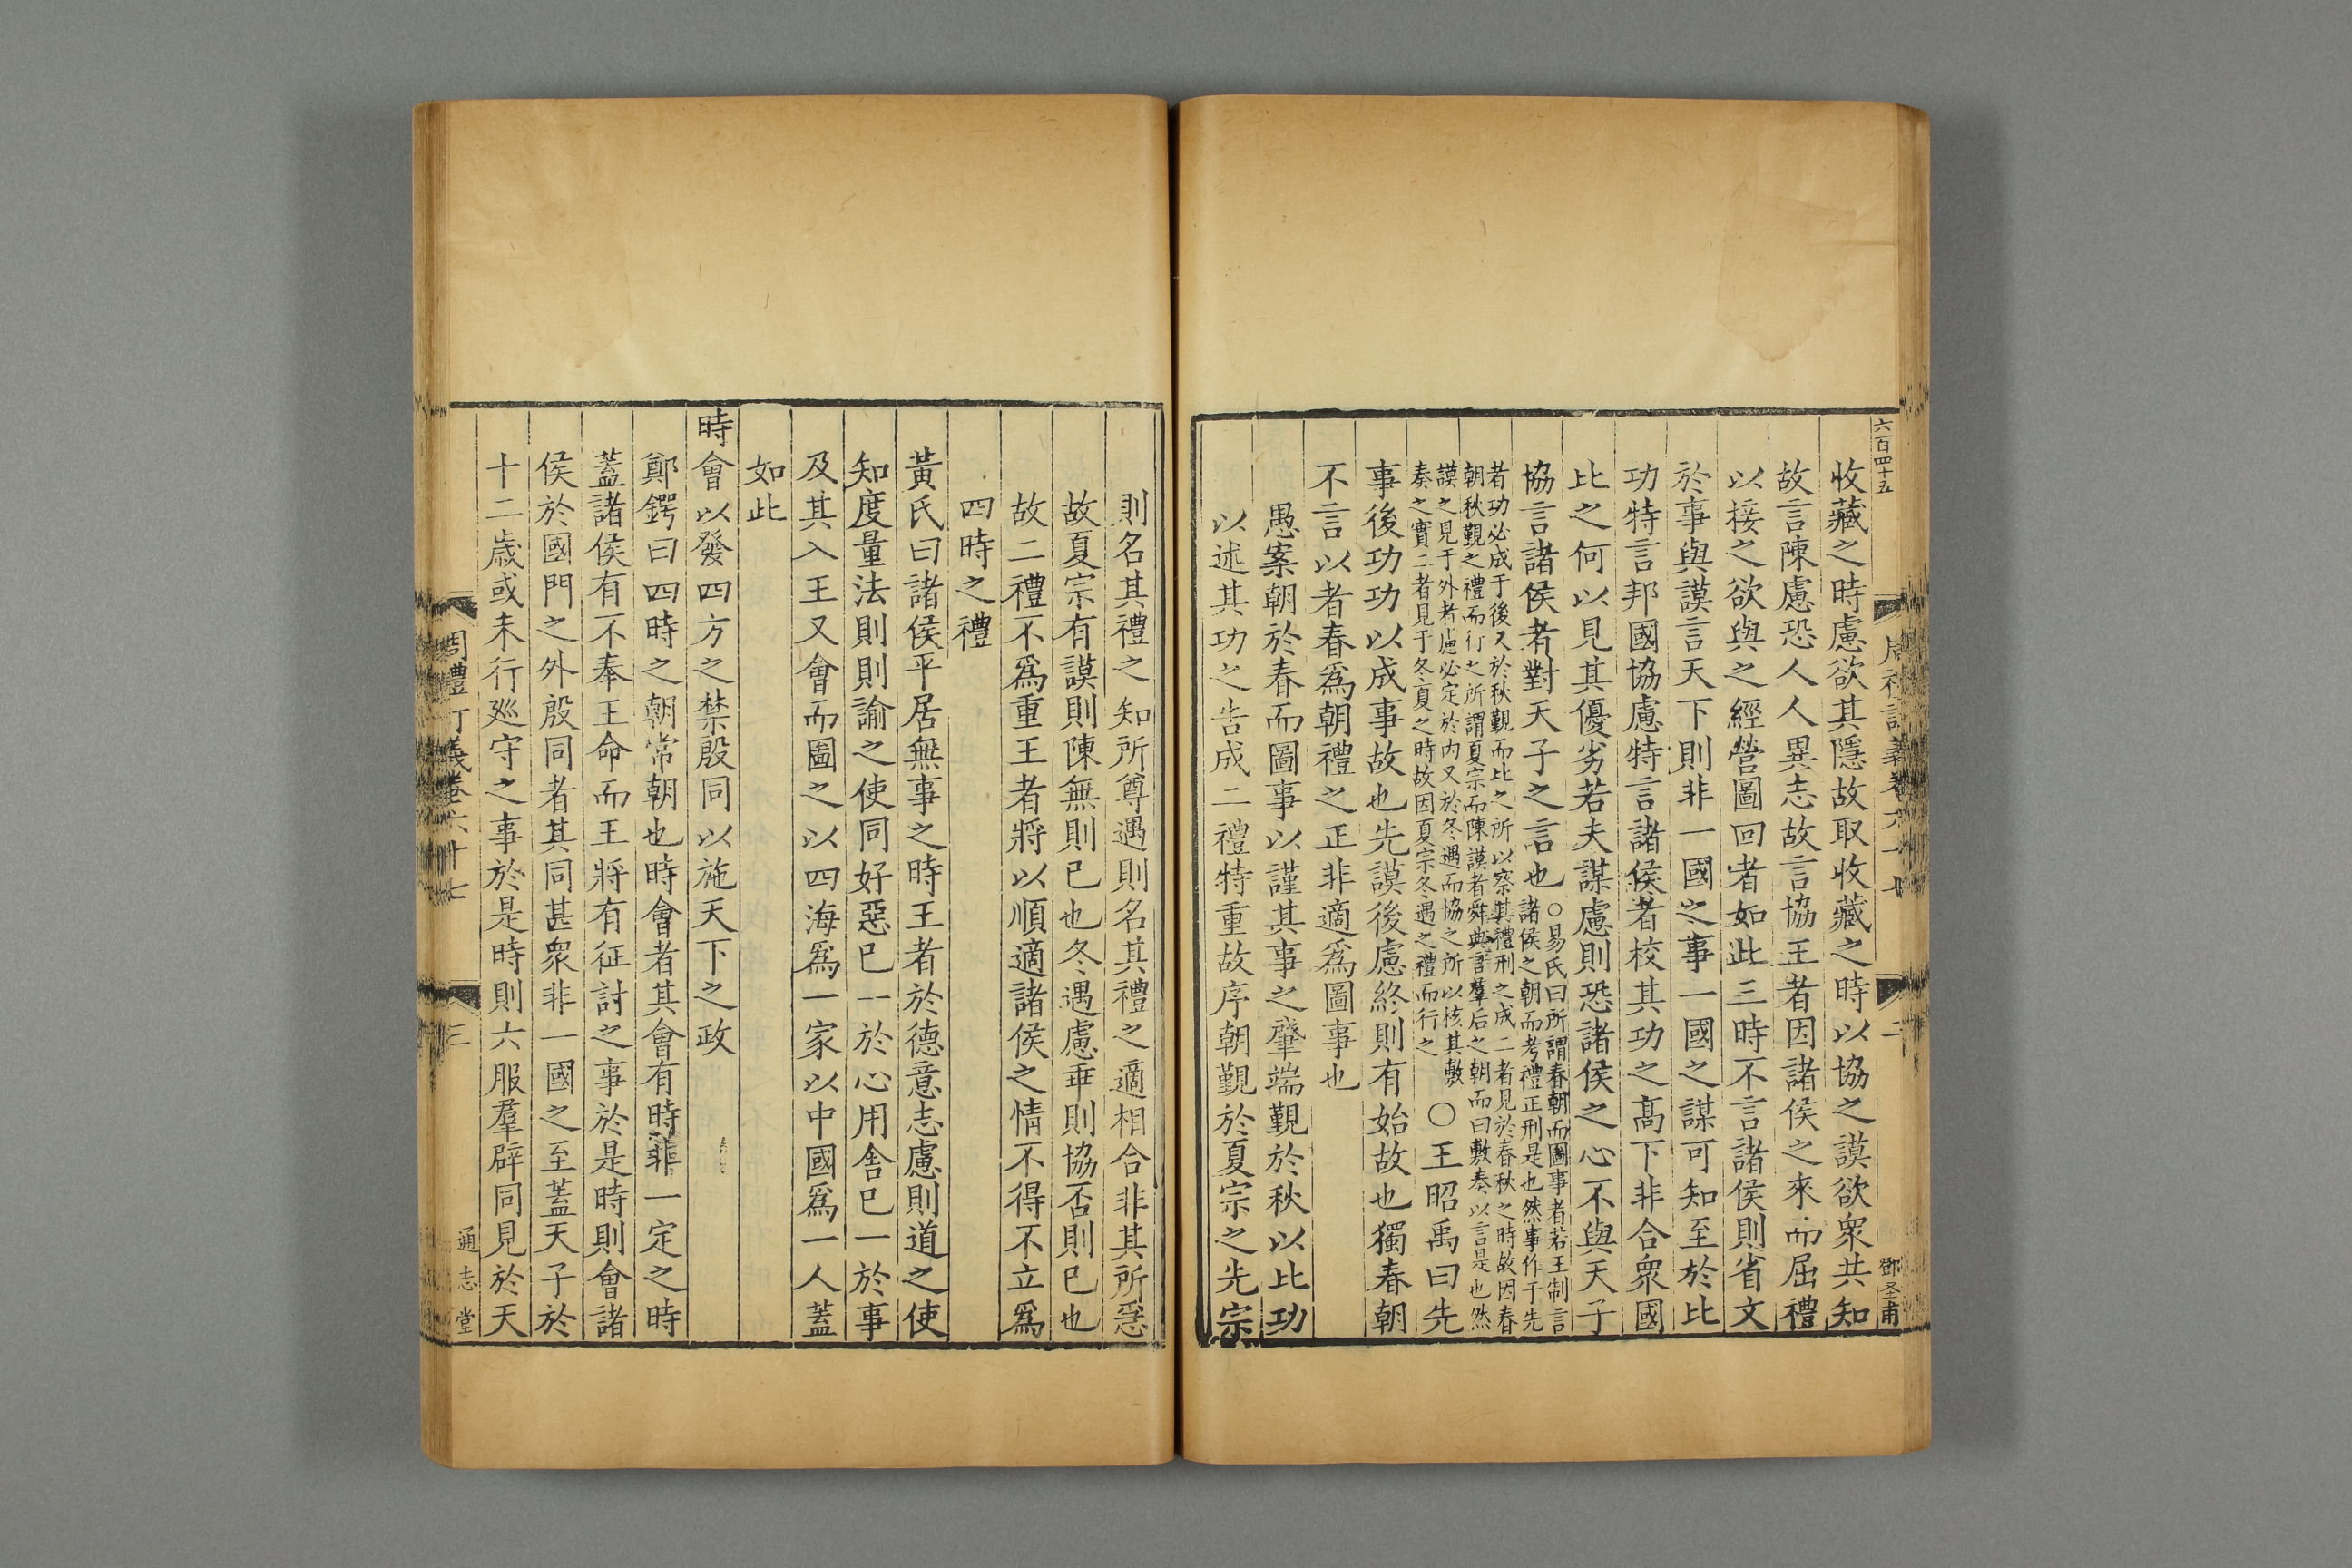 六百四十五
周禮訂義卷六十七
二
鄧圣甫
收藏之時慮欲其隱故取收藏之時以協之謨欲衆共知
故言陳慮恐人人異志故言協王者因諸侯之來而屈禮
以接之欲與之經營圖回者如此三時不言諸侯則省文
於事與謨言天下則非一國之事一國之謀可知至於比
功特言邦國協慮特言諸侯者校其功之髙下非合衆國
比之何以見其優劣若夫謀慮則恐諸侯之心不與天子
協言諸侯者對天子之言也
○易氏曰所謂春朝而圖事者若王制言
諸侯之朝而考禮正刑是也然事作于先
者功必成于後又於秋覲而比之所以察其禮刑之成二者見於春秋之時故因春
朝秋覲之禮而行之所謂夏宗而陳謨者舜典言羣后之朝而曰敷奏以言是也然
謨之見于外者慮必定於内又於冬遇而協之所以核其敷
奏之實二者見于冬夏之時故因夏宗冬遇之禮而行之
○王昭禹曰先
事後功功以成事故也先謨後慮終則有始故也獨春朝
不言以者春爲朝禮之正非適爲圖事也
愚案朝於春而圖事以謹其事之肇端覲於秋以比功
以述其功之告成二禮特重故序朝覲於夏宗之先宗
則名其禮之知所尊遇則名其禮之適相合非其所急
故夏宗有謨則陳無則已也冬遇慮乖則協否則已也
故二禮不爲重王者將以順適諸侯之情不得不立爲
四時之禮
黃氏曰諸侯平居無事之時王者於德意志慮則道之使
知度量法則則諭之使同好惡巳一於心用舍巳一於事
及其入王又會而圖之以四海爲一家以中國爲一人蓋
如此
時會以發四方之禁殷同以施天下之政
鄭鍔曰四時之朝常朝也時會者其會有時非一定之時
蓋諸侯有不奉王命而王將有征討之事於是時則會諸
侯於國門之外殷同者其同甚衆非一國之至蓋天子於
十二歲或未行廵守之事於是時則六服羣辟同見於天
周禮訂義卷六十七
三
通志堂